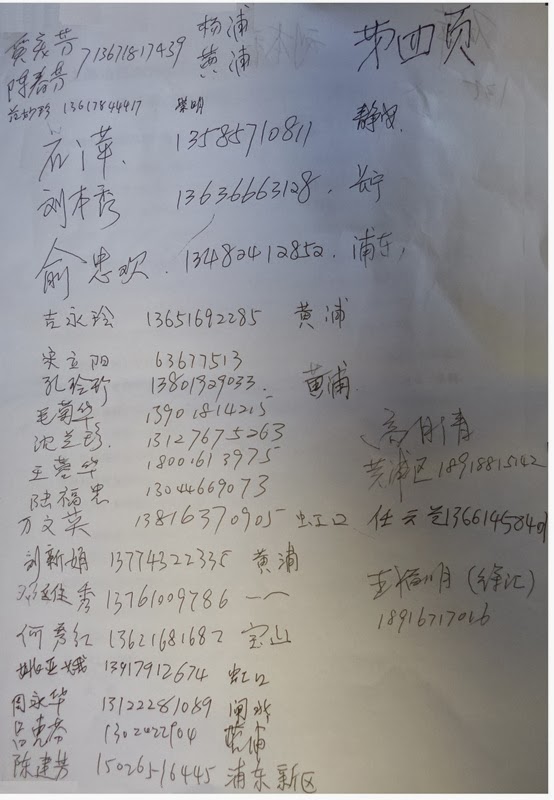 第四页
杨浦
陈春芳 13671817439 黄浦
13617844417 崇明
石萍 13585710811 静安
刘本秀 13636663128 长宁
俞忠欢 13482412852 浦东
吉永玲 13651692285 黄浦
宋立阳 63677513
孔玲珍 13801929033 黄浦
毛菊华 13901814215
沈芝珍 13127675263 高月清
王蓉华 18001613975 黄浦区 18918815142
陆福忠 13044669073
万文英 13816370905 虹口 任云芝
刘新娟 13774322335 黄浦
13761009786 王福明(徐汇)
何秀红 13621681682 宝山 18916717016
13917912674 虹口
周永华 13122281089 闸北
吕克芬 黄浦
陈建芳 浦东新区